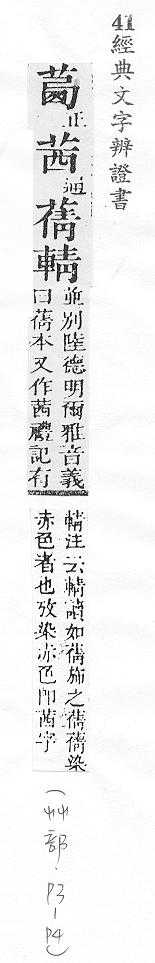 41 經典文字辨證書
正茜通蒨輤
並別陸德明爾雅音義
曰蒨本又作茜禮記有
輤注云輤讀如蒨旆之蒨蒨染
赤色者也攷染赤色即茜字
(艸部.P3-P4)